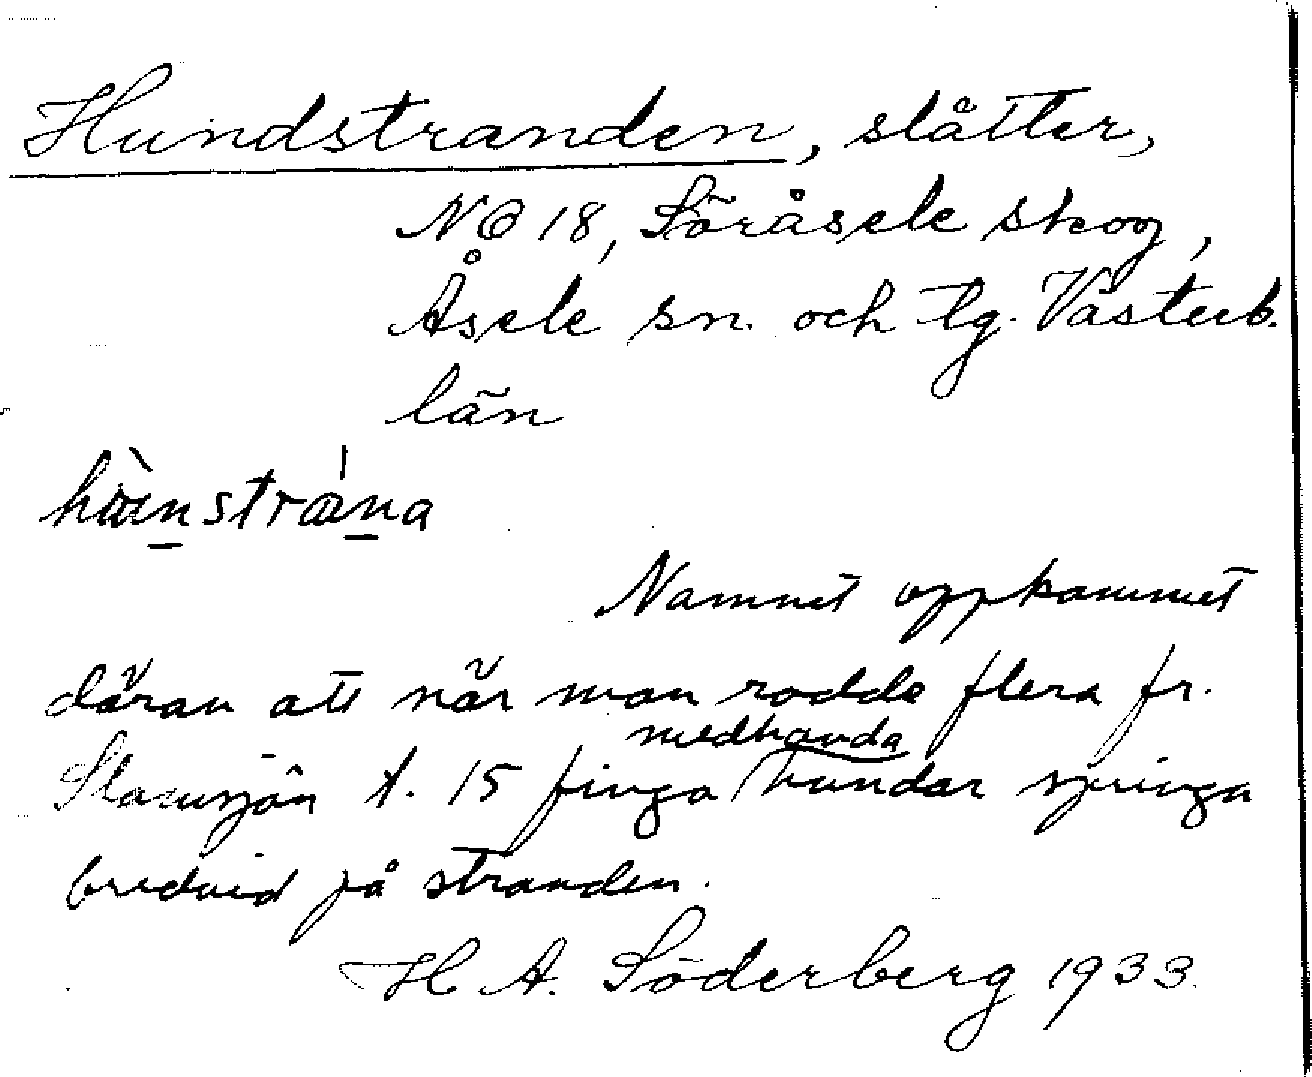 Hundstranden, slåtter,
NO 18, Söråsele skog,
Åsele sn. och tg. Västerb.
län
Namnet uppkommet
därav att när man rodde flera fr.
t. 15 finga medhavda hundar springa
bredvid på stranden.
H A. Söderberg 1933.